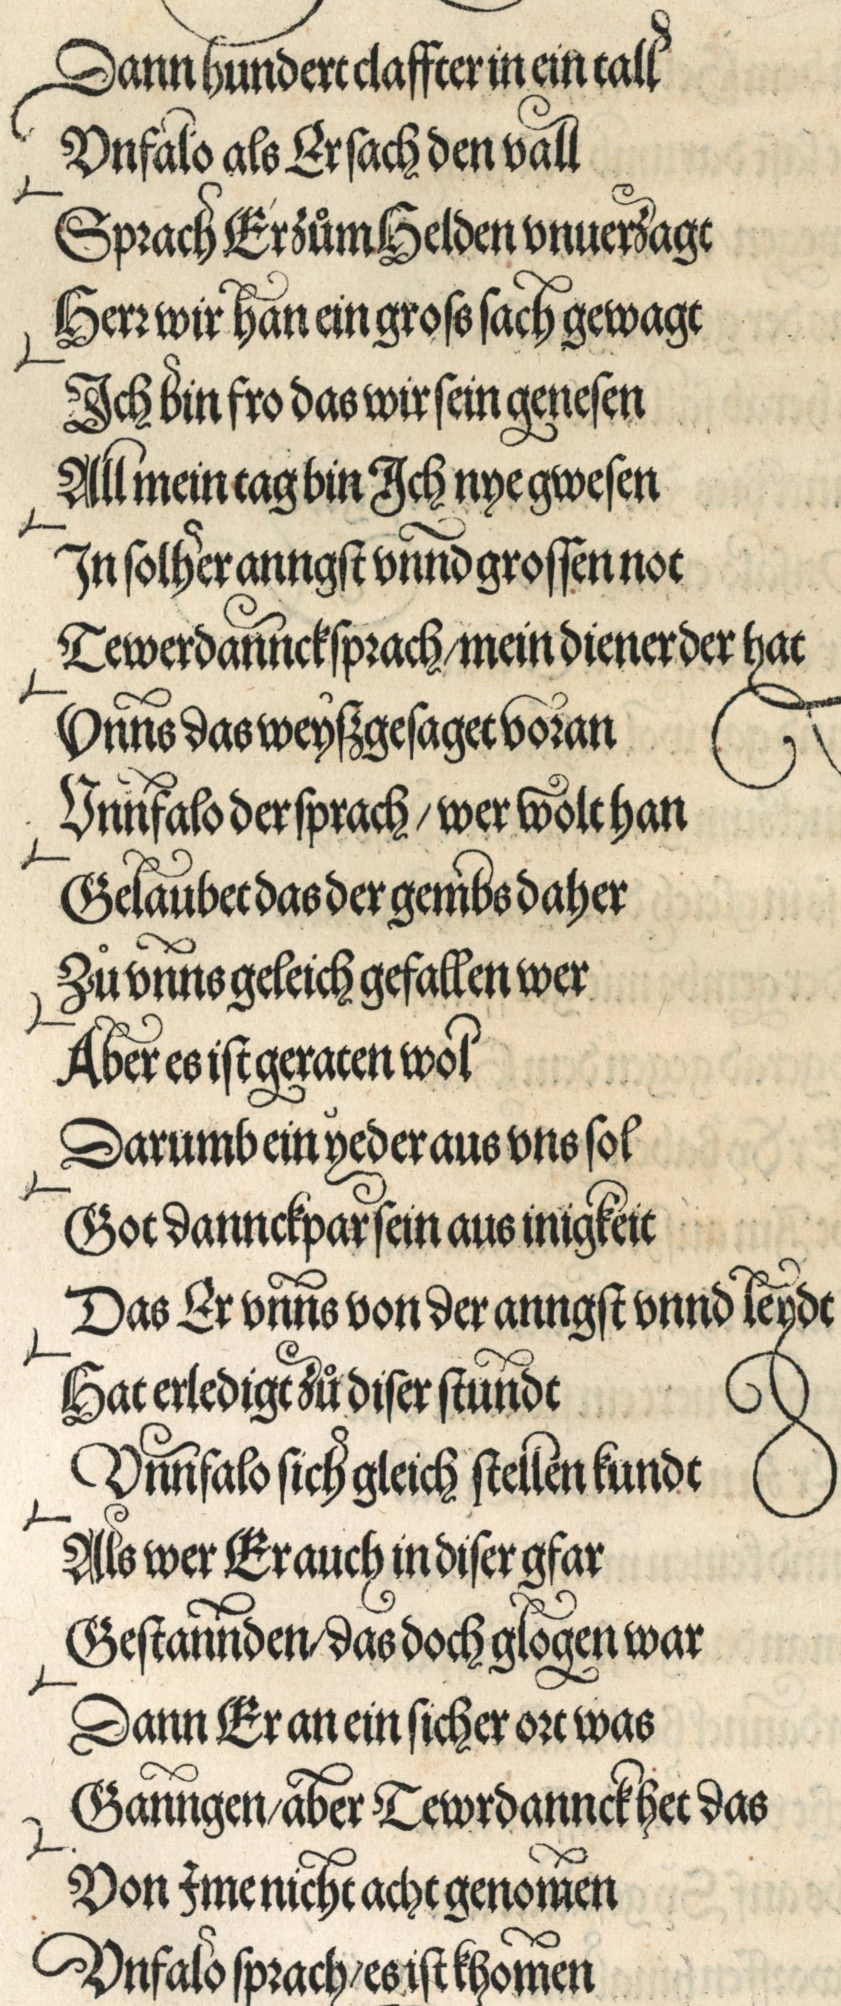 Dann hundert claffter in ein tall
Vnfalo als Er sach den vall
Sprach Er zům Helden vnuerzagt
Herr wir han ein gross sach gewagt
Ich bin fro das wir sein genesen
All mein tag bin Ich nye gwesen
In solher anngst vnnd grossen not
Tewerdannck sprach / mein diener der hat
Vnns das weyßgesaget voran
Vnnfalo der sprach / wer wolt han
Gelaubet das der gembs daher
Zů vnns geleich gefallen wer
Aber es ist geraten wol
Darumb ein yeder aus vns sol
Got dannckpar sein aus inigkeit
Das Er vnns von der anngst vnnd leydt
Hat erledigt zů diser stundt
Vnnfalo sich gleich stellen kundt
Als wer Er auch in diser gfar
Gestannden / das doch glogen war
Dann Er an ein sicher ort was
Ganngen / aber Tewrdannck het das
Von Ime nicht acht genomen
Vnfalo sprach / es ist khomen